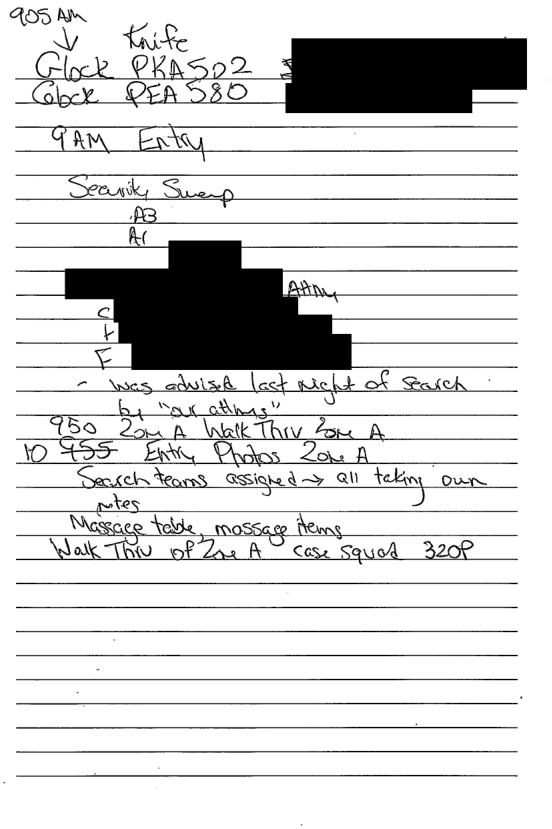 905 AM
Knife
Glock PKA502
Glock PEA580
9 AM Entry
Security Sweep
A3
A1
Attny
C
F
- was advised last night of search
by "our attnys"
950 Zone A Walk Thru Zone A
10 955 Entry Photos Zone A
Search teams assigned → all taking own
notes
Massage table, massage items
Walk Thru of Zone A case squad 320P